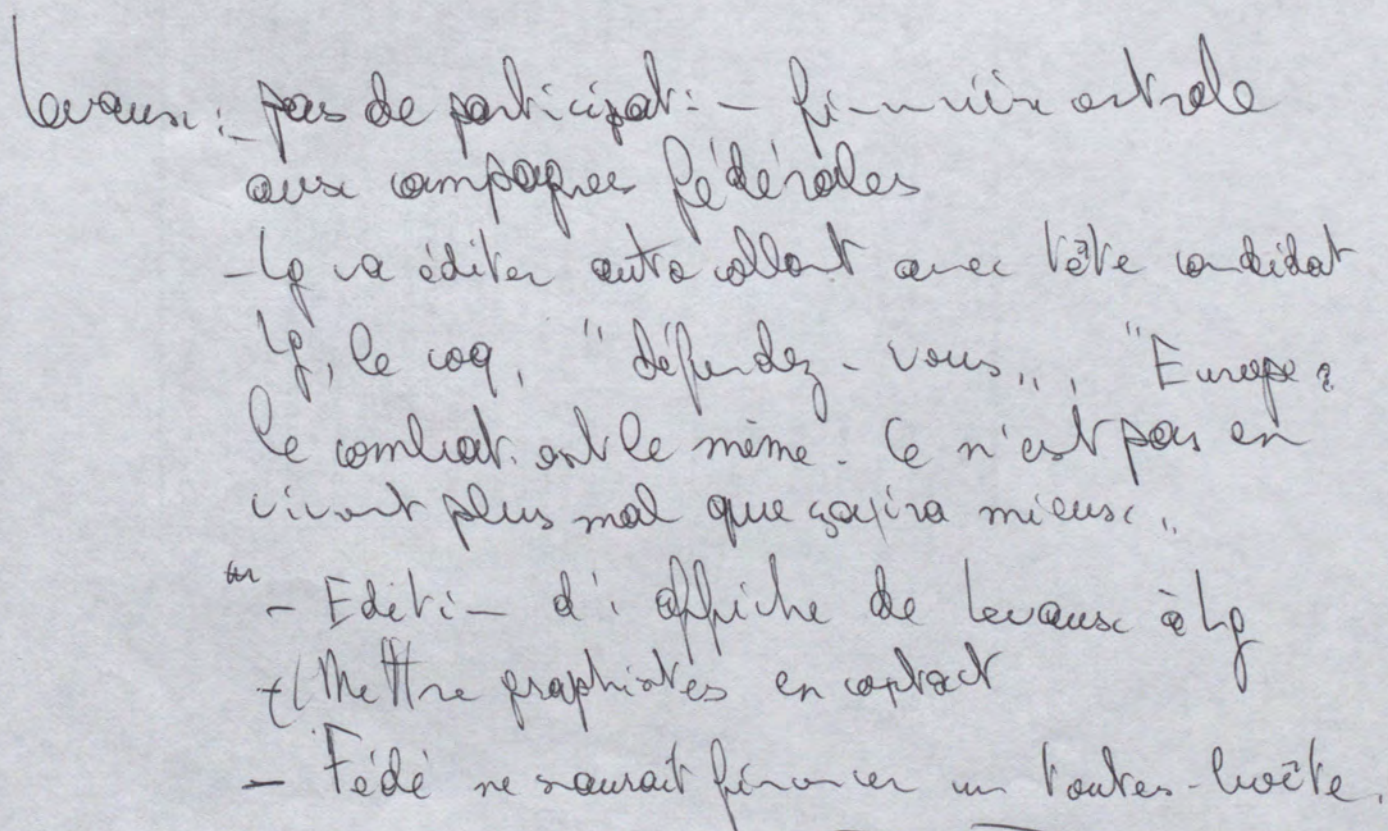 Levaux : - pas de participati- financière centrale
aux campagnes fédérales
- Lg va éditer auto collant avec tête candidat
Lg, le coq, "défendez-vous", "Europe :
le combat est le même. Ce n'est pas en
vivant plus mal que ça ira mieux"
- Editi- d'1 affiche de Levaux à Lg
+ (Mettre graphistes en contact
- Fédé ne saurait financer un toutes-boîte.